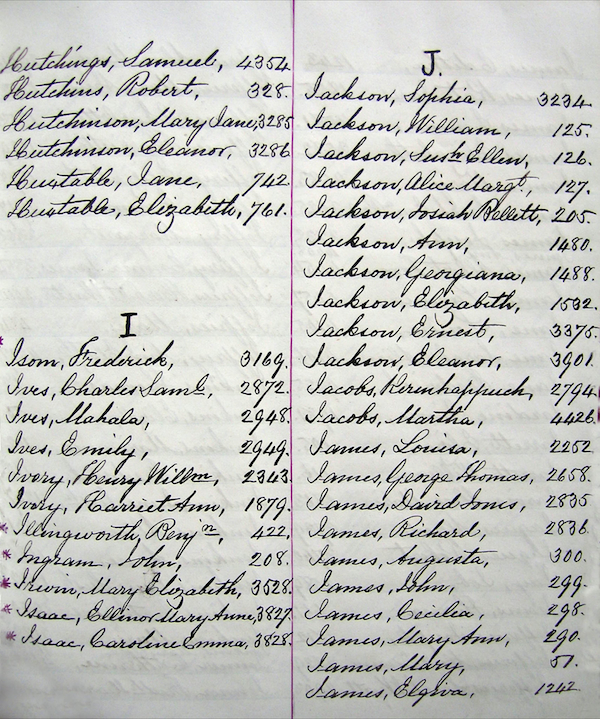 Hutchings, Samuel, 4354
Hutchins, Robert, 328.
Hutchinson, Mary Jane, 3285
Hutchinson, Eleanor, 3286
Huxtable, Jane, 742.
Huxtable, Elizabeth, 761.
I
Isom, Frederick, 3169.
Ives, Charles Saml, 2872
Ives, Mahala, 2948
Ives, Emily, 2949.
Ivory, Henry Willm, 2343
Ivory, Harriet Ann, 1879.
* Illingworth, Benjn, 422.
* Ingram, John, 208.
* Irwin, Mary Elizabeth, 3628.
* Isaac, Ellinor Mary Anne, 3827.
* Isaac, Caroline Emma, 3828.
J.
Jackson, Sophia, 3234
Jackson, William, 125.
Jackson, Sush Ellen, 126.
Jackson, Alice Margt, 127.
Jackson, Josiah Pellett, 205.
Jackson, Ann, 1480.
Jackson, Georgiana, 1488.
Jackson, Elizabeth, 1532.
Jackson, Ernest, 3375.
Jackson, Eleanor, 3901.
Jacobs, Kerenhappuch, 2794
Jacobs, Martha, 4426.
James, Louisa, 2252
James, George Thomas, 2658.
James, David Innis, 2835
James, Richard, 2836.
James, Augusta, 300.
James, John, 299.
James, Cecilia, 298.
James, Mary Ann, 290.
James, Mary, 51.
James, Elgiva, 1242.